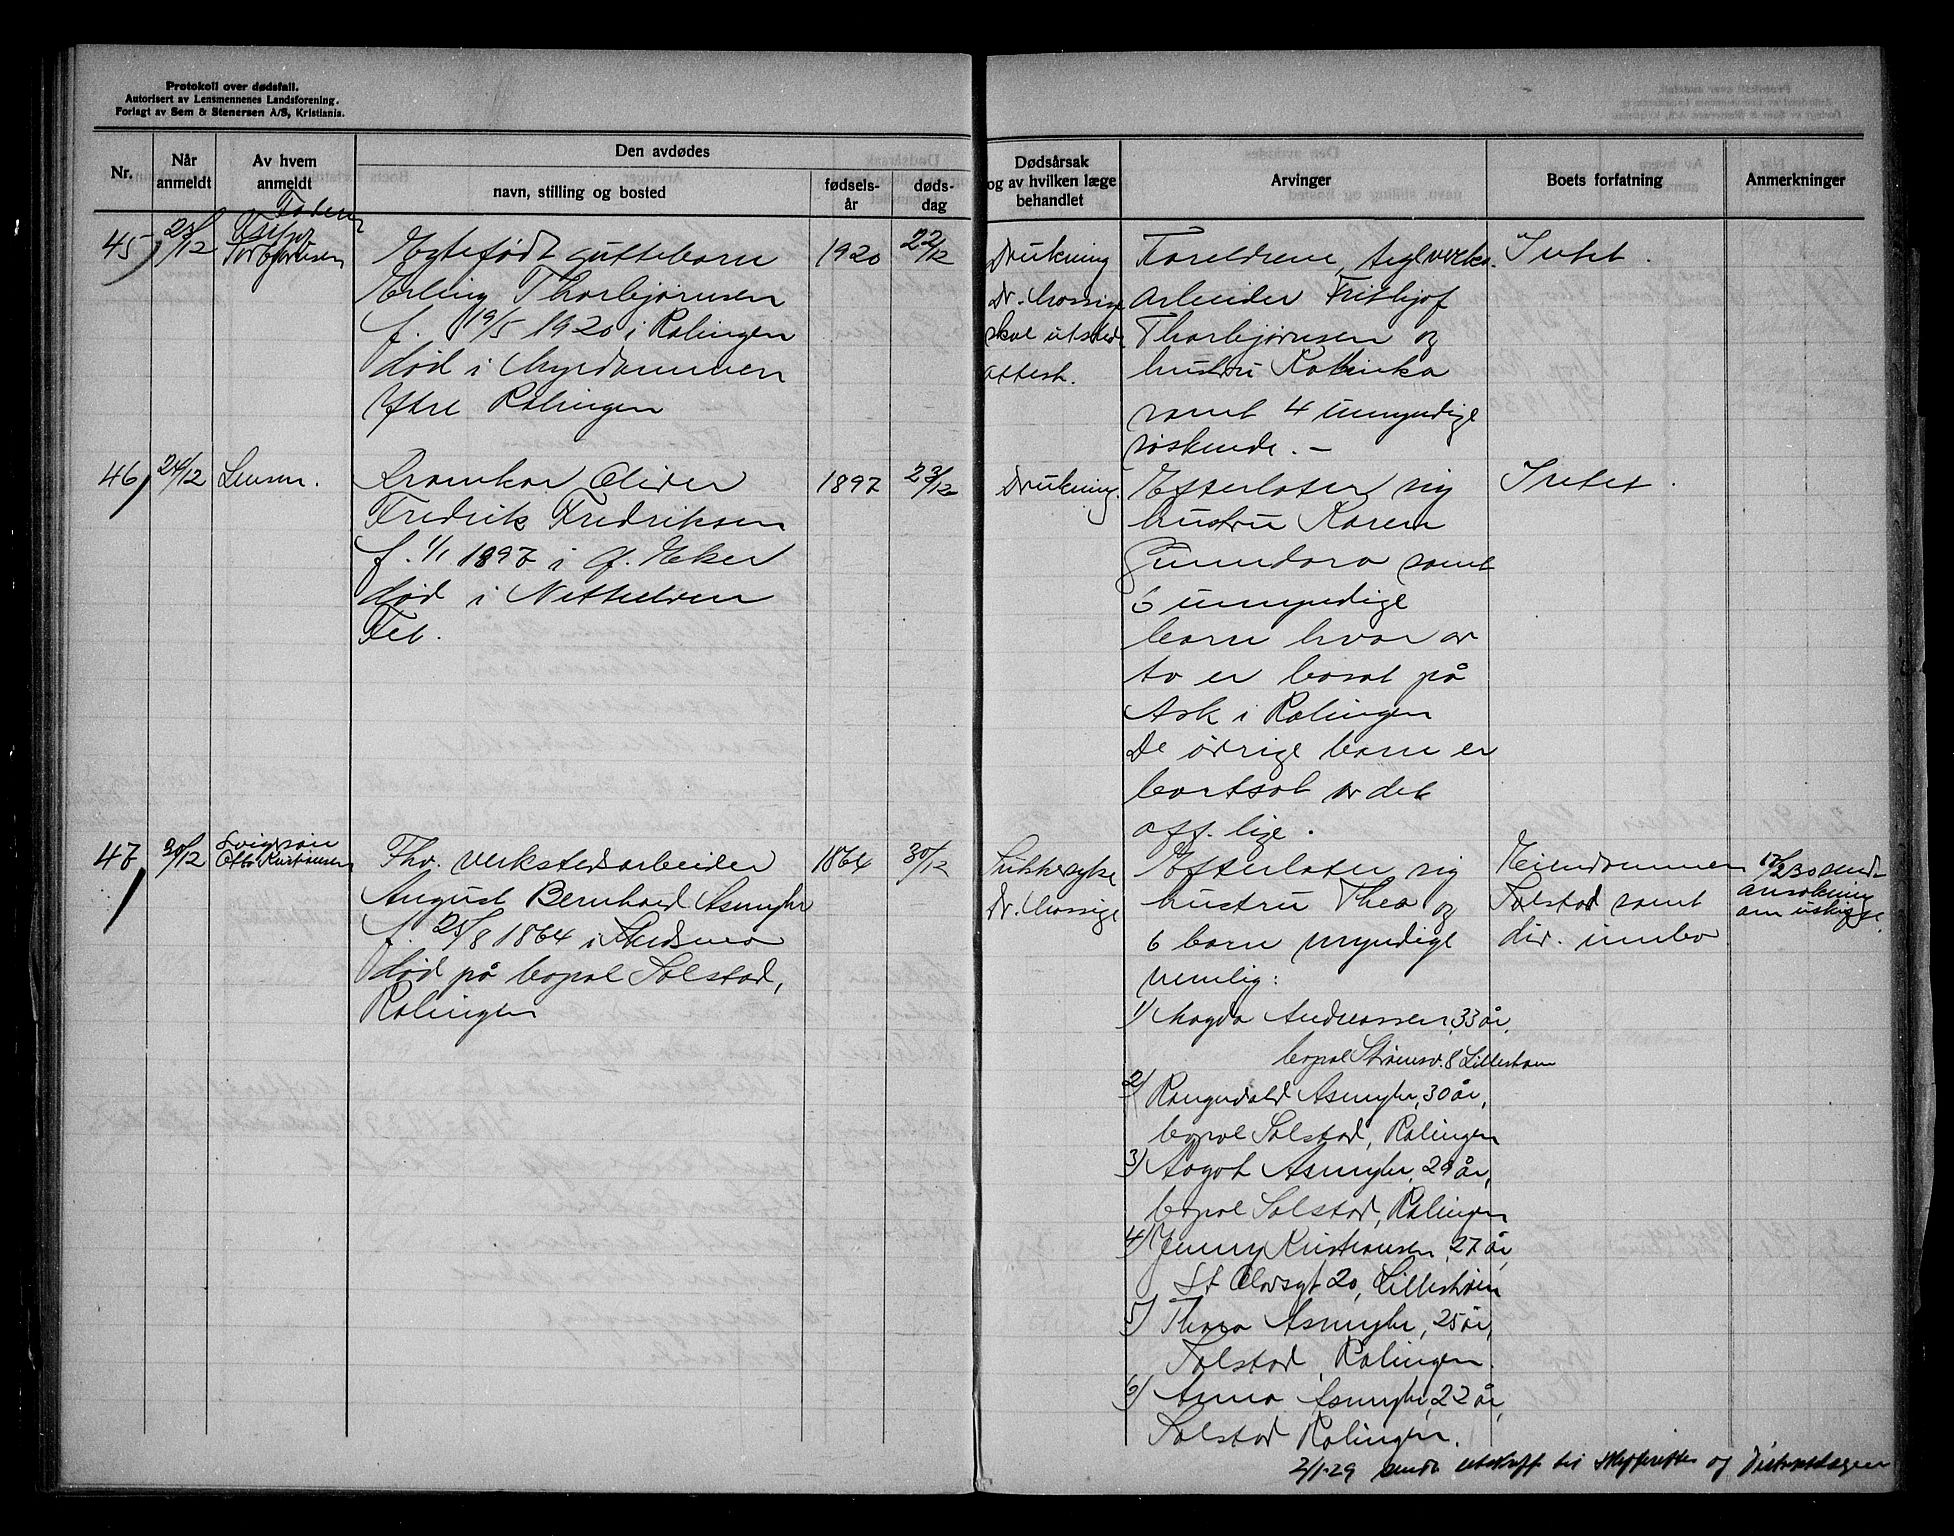 Protokoll over dødsfall.
Autorisert av Lensmennenes Landsforening.
Forlagt av Sem & Stenersen A/S, Kristiania.
Nr.
Når anmeldt
Av hvem anmeldt
Den avdødes
navn, stilling og bosted
fødselsår
dødsdag
Dødsårsak og av hvilken læge behandlet
Arvinger
Boets forfatning
Anmerkninger
45
23/12
Faderen
Torbjørnsen
Egtefødt guttebarn
Erling Thorbjørnsen
f. 19/5 1920 i Rælingen
død i Myrdammen
Ytre Rælingen
1920
22/12
Drukning
Dr. Mossige
skal utstede
attest.
Foreldrene, teglverks-
arbeider Frithjof
Thorbjørnsen og
hustru Kathinka
samt 4 umyndige
søskende. –
Intet.
46
24/12
Lensm.
Kramkar Oliver
Fredrik Fredriksen
f. 1/1 1897 i Ø. Eker
død i Nittelven
Fet.
1897
23/12
Drukning.
Efterlater sig
hustru Karen
Gunndora samt
6 umyndige
barn hvor av
to er bosat på
Ask i Rælingen
De øvrige barn er
bortsat av det
off. lige.
Intet.
47
30/12
Svigersøn
Otto Kristiansen
Fhv. verkstedsarbeider
August Bernhard Asmyhr
f. 25/8 1864 i Skedsmo
død på bopæl Solstad,
Rælingen
1864
30/12
Sukkersyke
Dr. Mossige
Efterlater sig
hustru Thea og
6 barn myndige
nemlig:
1) Magda Andreassen, 33 år,
bopæl Strømsv. 8 Lillestrøm
2) Rangvald Asmyhr, 30 år,
bopæl Solstad, Rælingen
3) Aagot Asmyhr, 29 år,
bopæl Solstad, Rælingen
4) Jenny Kristiansen, 27 år,
St. Olavsgt 20, Lillestrøm
5) Thora Asmyhr, 25 år,
Solstad, Rælingen.
6) Anna Asmyhr, 22 år,
Solstad Rælingen.
Eiendommen
Solstad samt
div. innbo
17/2 30 sendt
ansøkning
om uskifte.
2/1-29 sendt utskrift til Skifteretten og Distriktslægen